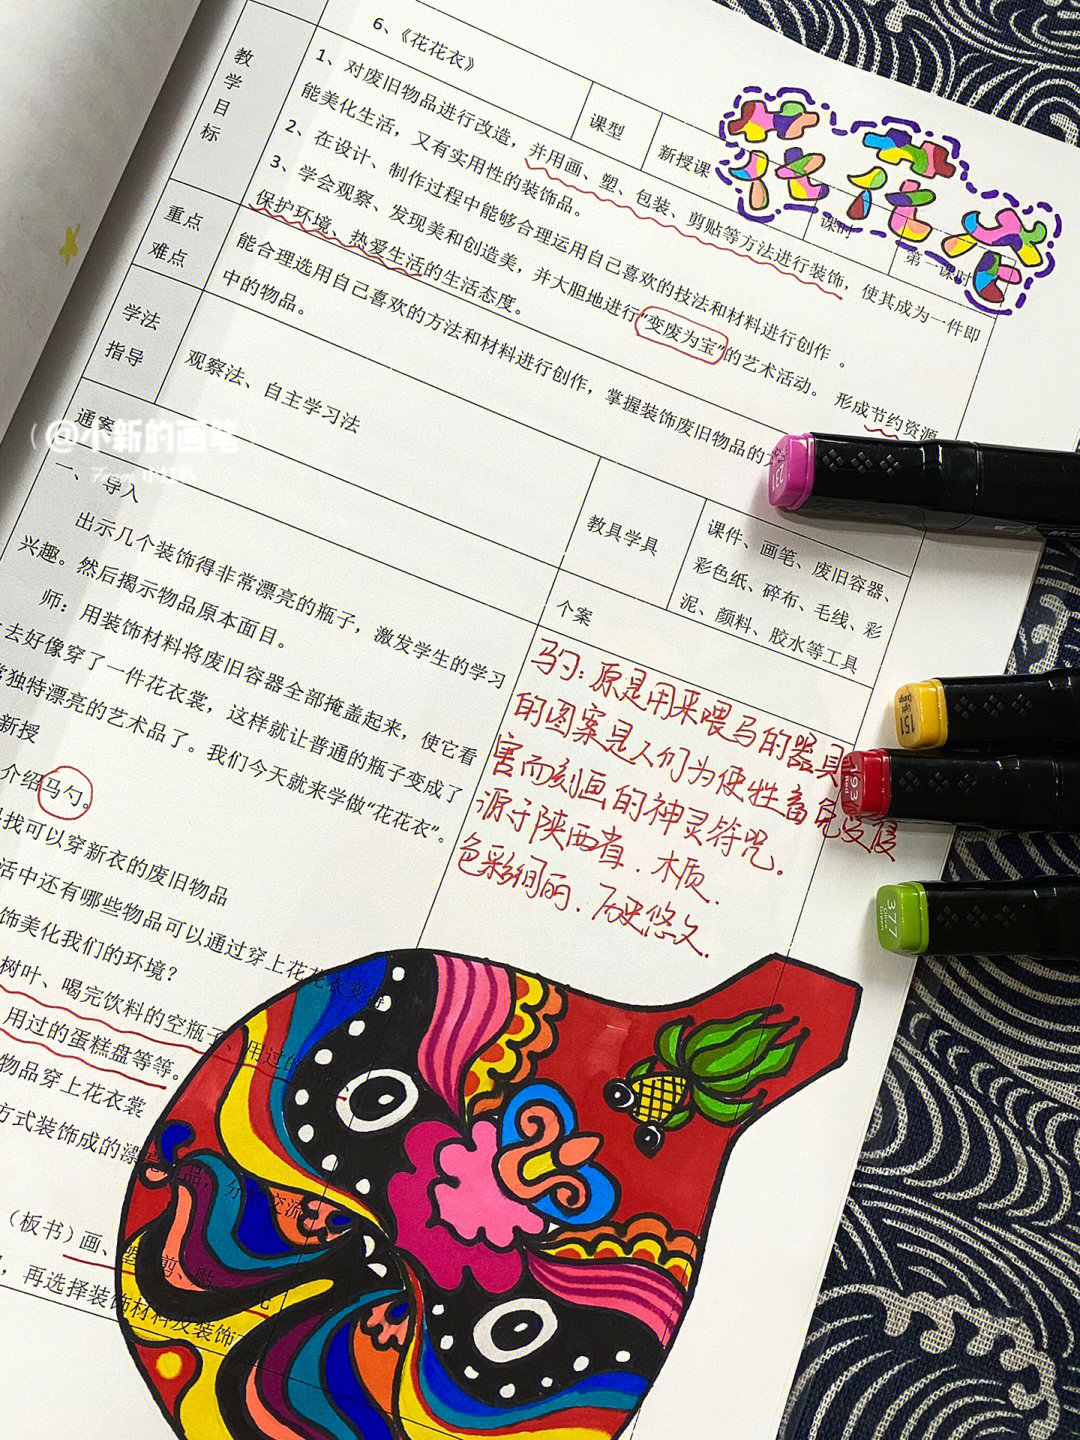 6、《花花衣》
课型
新授课
课时
第一课时
花花衣
教学目标
1、对废旧物品进行改造，并用画、塑、包装、剪贴等方法进行装饰，使其成为一件即
能美化生活，又有实用性的装饰品。
2、在设计、制作过程中能够合理运用自己喜欢的技法和材料进行创作 。
3、学会观察、发现美和创造美，并大胆地进行“变废为宝”的艺术活动。 形成节约资源
保护环境、热爱生活的生活态度。
重点
难点
能合理选用自己喜欢的方法和材料进行创作，掌握装饰废旧物品的方
中的物品。
学法
指导
观察法、自主学习法
教具学具
课件、画笔、废旧容器、
彩色纸、碎布、毛线、彩
泥、颜料、胶水等工具
通案
个案
@小新的画笔
一、导入
出示几个装饰得非常漂亮的瓶子，激发学生的学习
兴趣。然后揭示物品原本面目。
师：用装饰材料将废旧容器全部掩盖起来，使它看
去好像穿了一件花衣裳，这样就让普通的瓶子变成了
常独特漂亮的艺术品了。我们今天就来学做“花花衣”。
新授
介绍马勺。
找可以穿新衣的废旧物品
活中还有哪些物品可以通过穿上花花衣变得
饰美化我们的环境？
树叶、喝完饮料的空瓶子、用过的
用过的蛋糕盘等等。
物品穿上花衣裳
方式装饰成的漂 品，分 交流
（板书）画、塑、剪、贴
，再选择装饰材料及装饰
马勺：原是用来喂马的器具
的图案是人们为使牲畜免受侵
害而刻画的神灵符咒。
源于陕西省．木质．
色彩绚丽．历史悠久．
231
151
193
Red
377